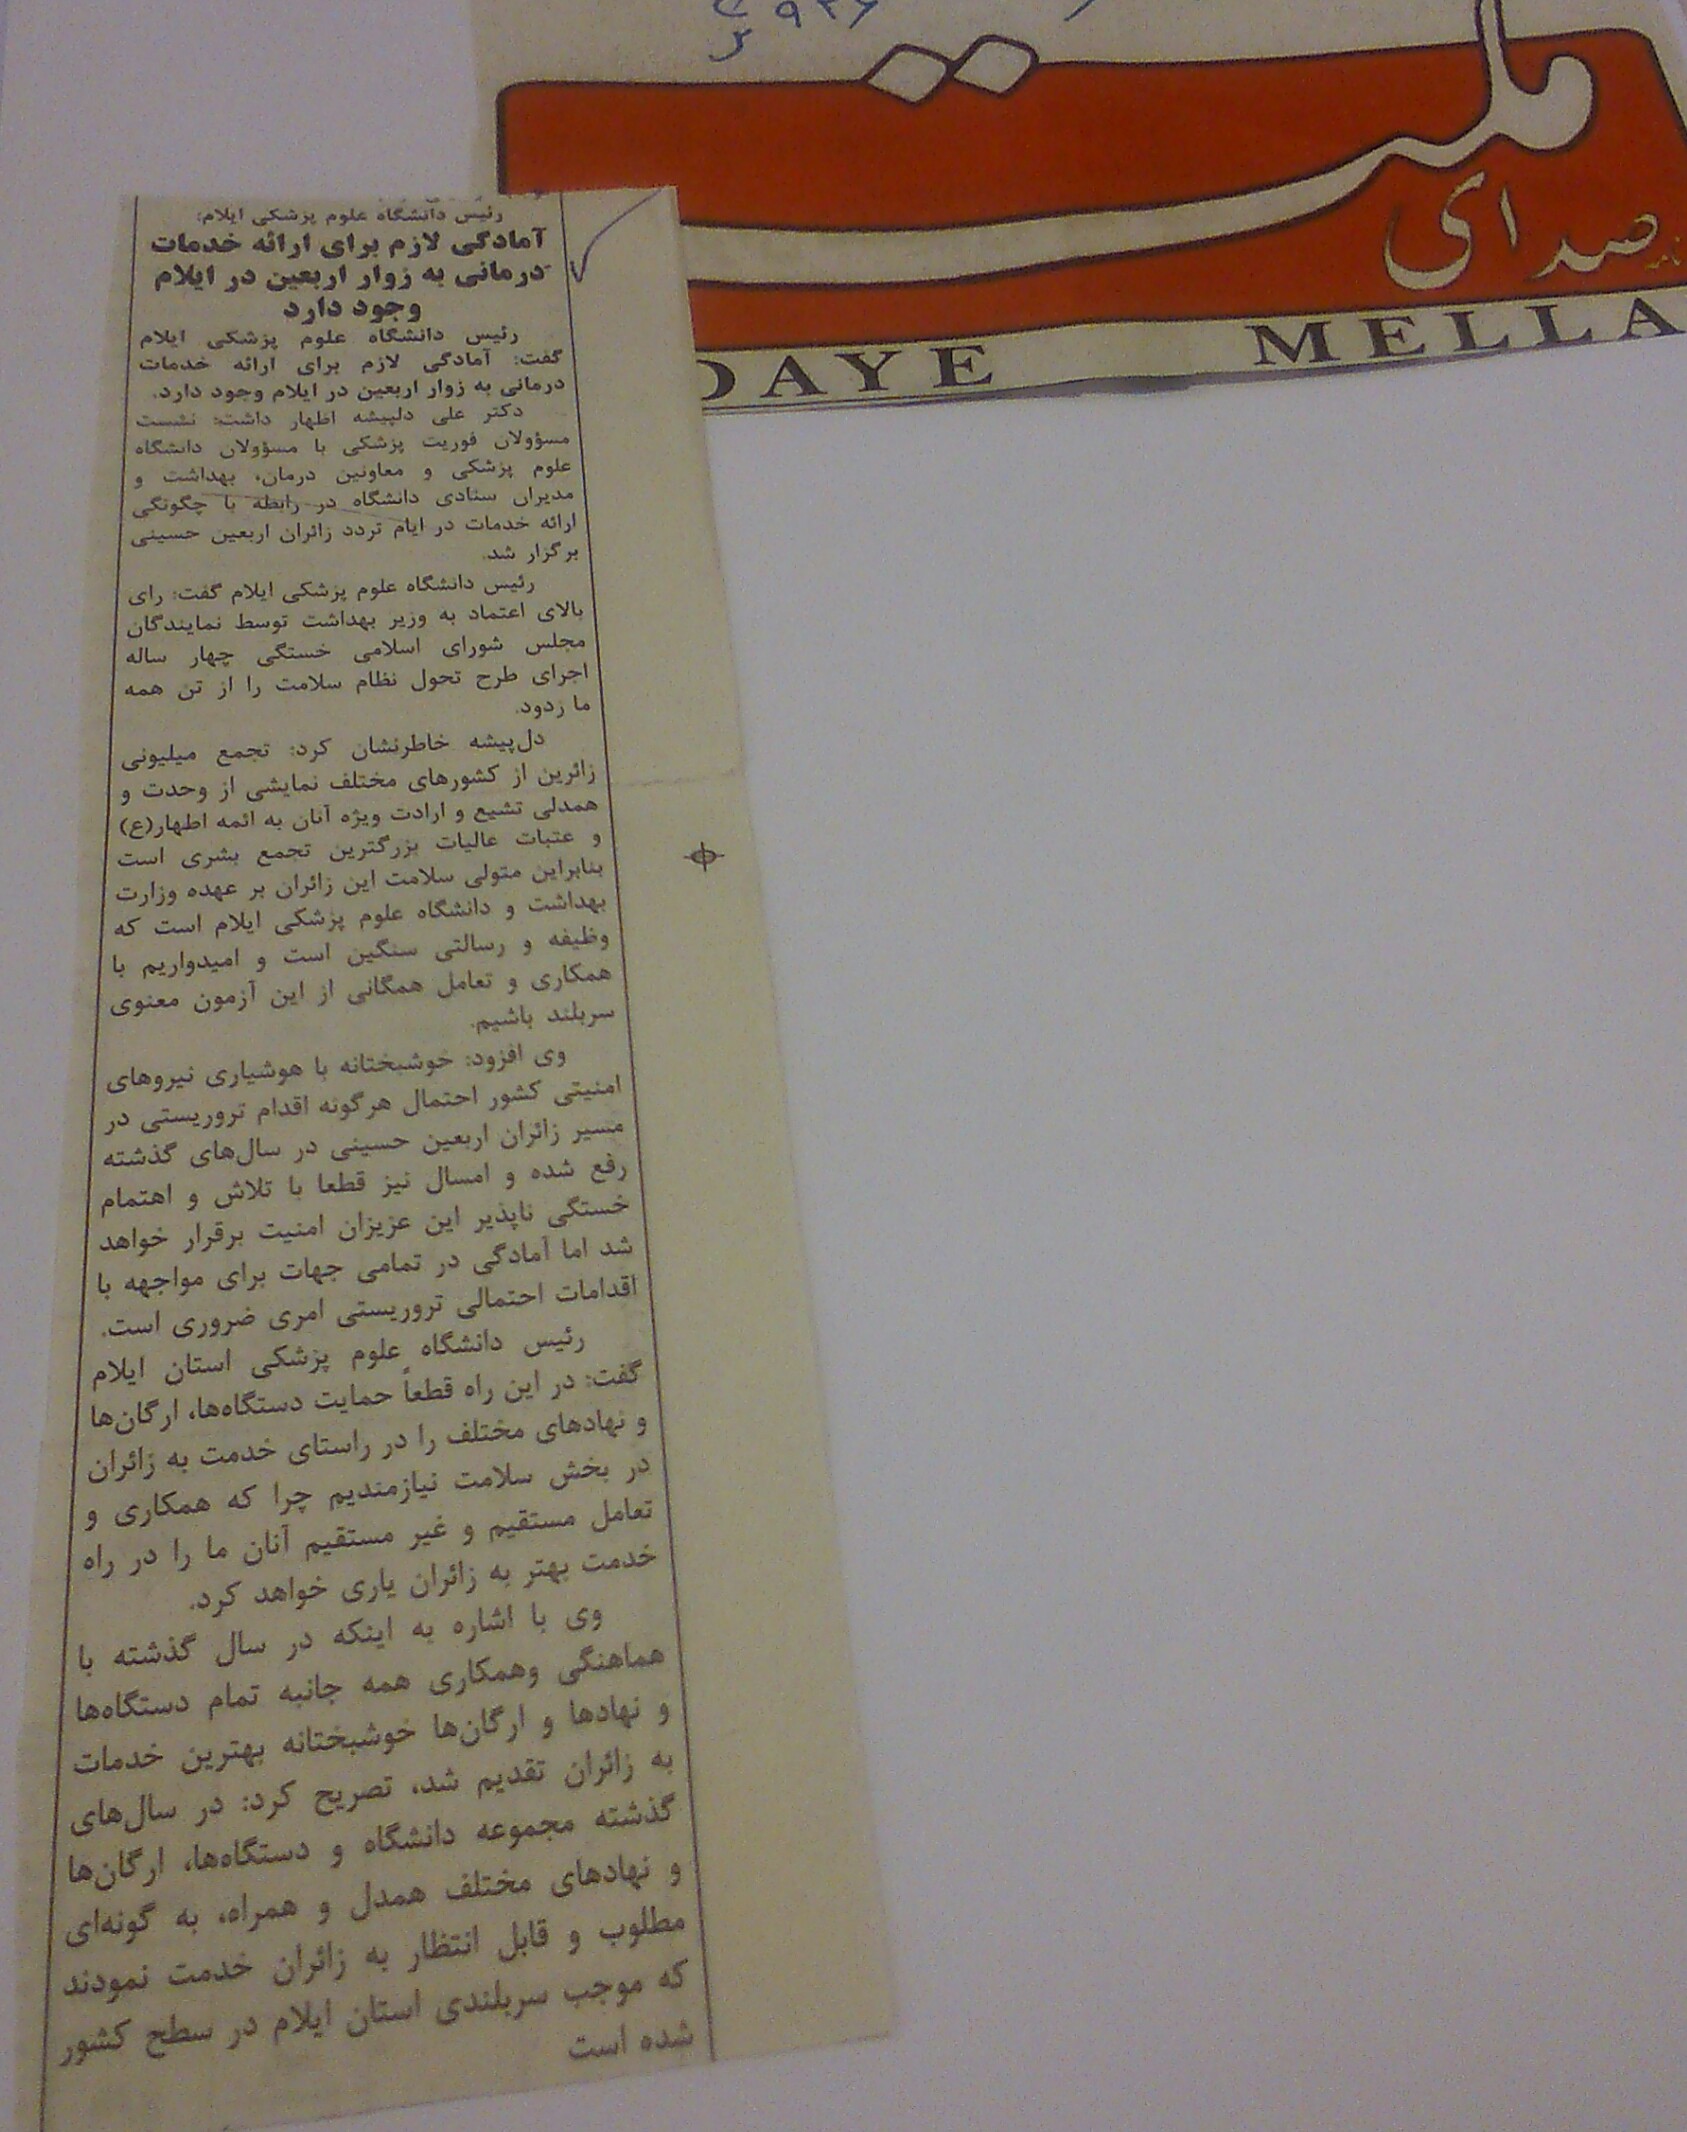 صدای
ملت
DAYE MELLA
رئیس دانشگاه علوم پزشکی ایلام:
آمادگی لازم برای ارائه خدمات
درمانی به زوار اربعین در ایلام
وجود دارد
رئیس دانشگاه علوم پزشکی ایلام
گفت: آمادگی لازم برای ارائه خدمات
درمانی به زوار اربعین در ایلام وجود دارد.
دکتر علی دلپیشه اظهار داشت: نشست
مسؤولان فوریت پزشکی با مسؤولان دانشگاه
علوم پزشکی و معاونین درمان، بهداشت و
مدیران ستادی دانشگاه در رابطه با چگونگی
ارائه خدمات در ایام تردد زائران اربعین حسینی
برگزار شد.
رئیس دانشگاه علوم پزشکی ایلام گفت: رای
بالای اعتماد به وزیر بهداشت توسط نمایندگان
مجلس شورای اسلامی خستگی چهار ساله
اجرای طرح تحول نظام سلامت را از تن همه
ما زدود.
دل‌پیشه خاطرنشان کرد: تجمع میلیونی
زائرین از کشورهای مختلف نمایشی از وحدت و
همدلی تشیع و ارادت ویژه آنان به ائمه اطهار(ع)
و عتبات عالیات بزرگترین تجمع بشری است
بنابراین متولی سلامت این زائران بر عهده وزارت
بهداشت و دانشگاه علوم پزشکی ایلام است که
وظیفه و رسالتی سنگین است و امیدواریم با
همکاری و تعامل همگانی از این آزمون معنوی
سربلند باشیم.
وی افزود: خوشبختانه با هوشیاری نیروهای
امنیتی کشور احتمال هرگونه اقدام تروریستی در
مسیر زائران اربعین حسینی در سال‌های گذشته
رفع شده و امسال نیز قطعا با تلاش و اهتمام
خستگی ناپذیر این عزیزان امنیت برقرار خواهد
شد اما آمادگی در تمامی جهات برای مواجهه با
اقدامات احتمالی تروریستی امری ضروری است.
رئیس دانشگاه علوم پزشکی استان ایلام
گفت: در این راه قطعاً حمایت دستگاه‌ها، ارگان‌ها
و نهادهای مختلف را در راستای خدمت به زائران
در بخش سلامت نیازمندیم چرا که همکاری و
تعامل مستقیم و غیر مستقیم آنان ما را در راه
خدمت بهتر به زائران یاری خواهد کرد.
وی با اشاره به اینکه در سال گذشته با
هماهنگی وهمکاری همه جانبه تمام دستگاه‌ها
و نهادها و ارگان‌ها خوشبختانه بهترین خدمات
به زائران تقدیم شد، تصریح کرد: در سال‌های
گذشته مجموعه دانشگاه و دستگاه‌ها، ارگان‌ها
و نهادهای مختلف همدل و همراه، به گونه‌ای
مطلوب و قابل انتظار به زائران خدمت نمودند
که موجب سربلندی استان ایلام در سطح کشور
شده است